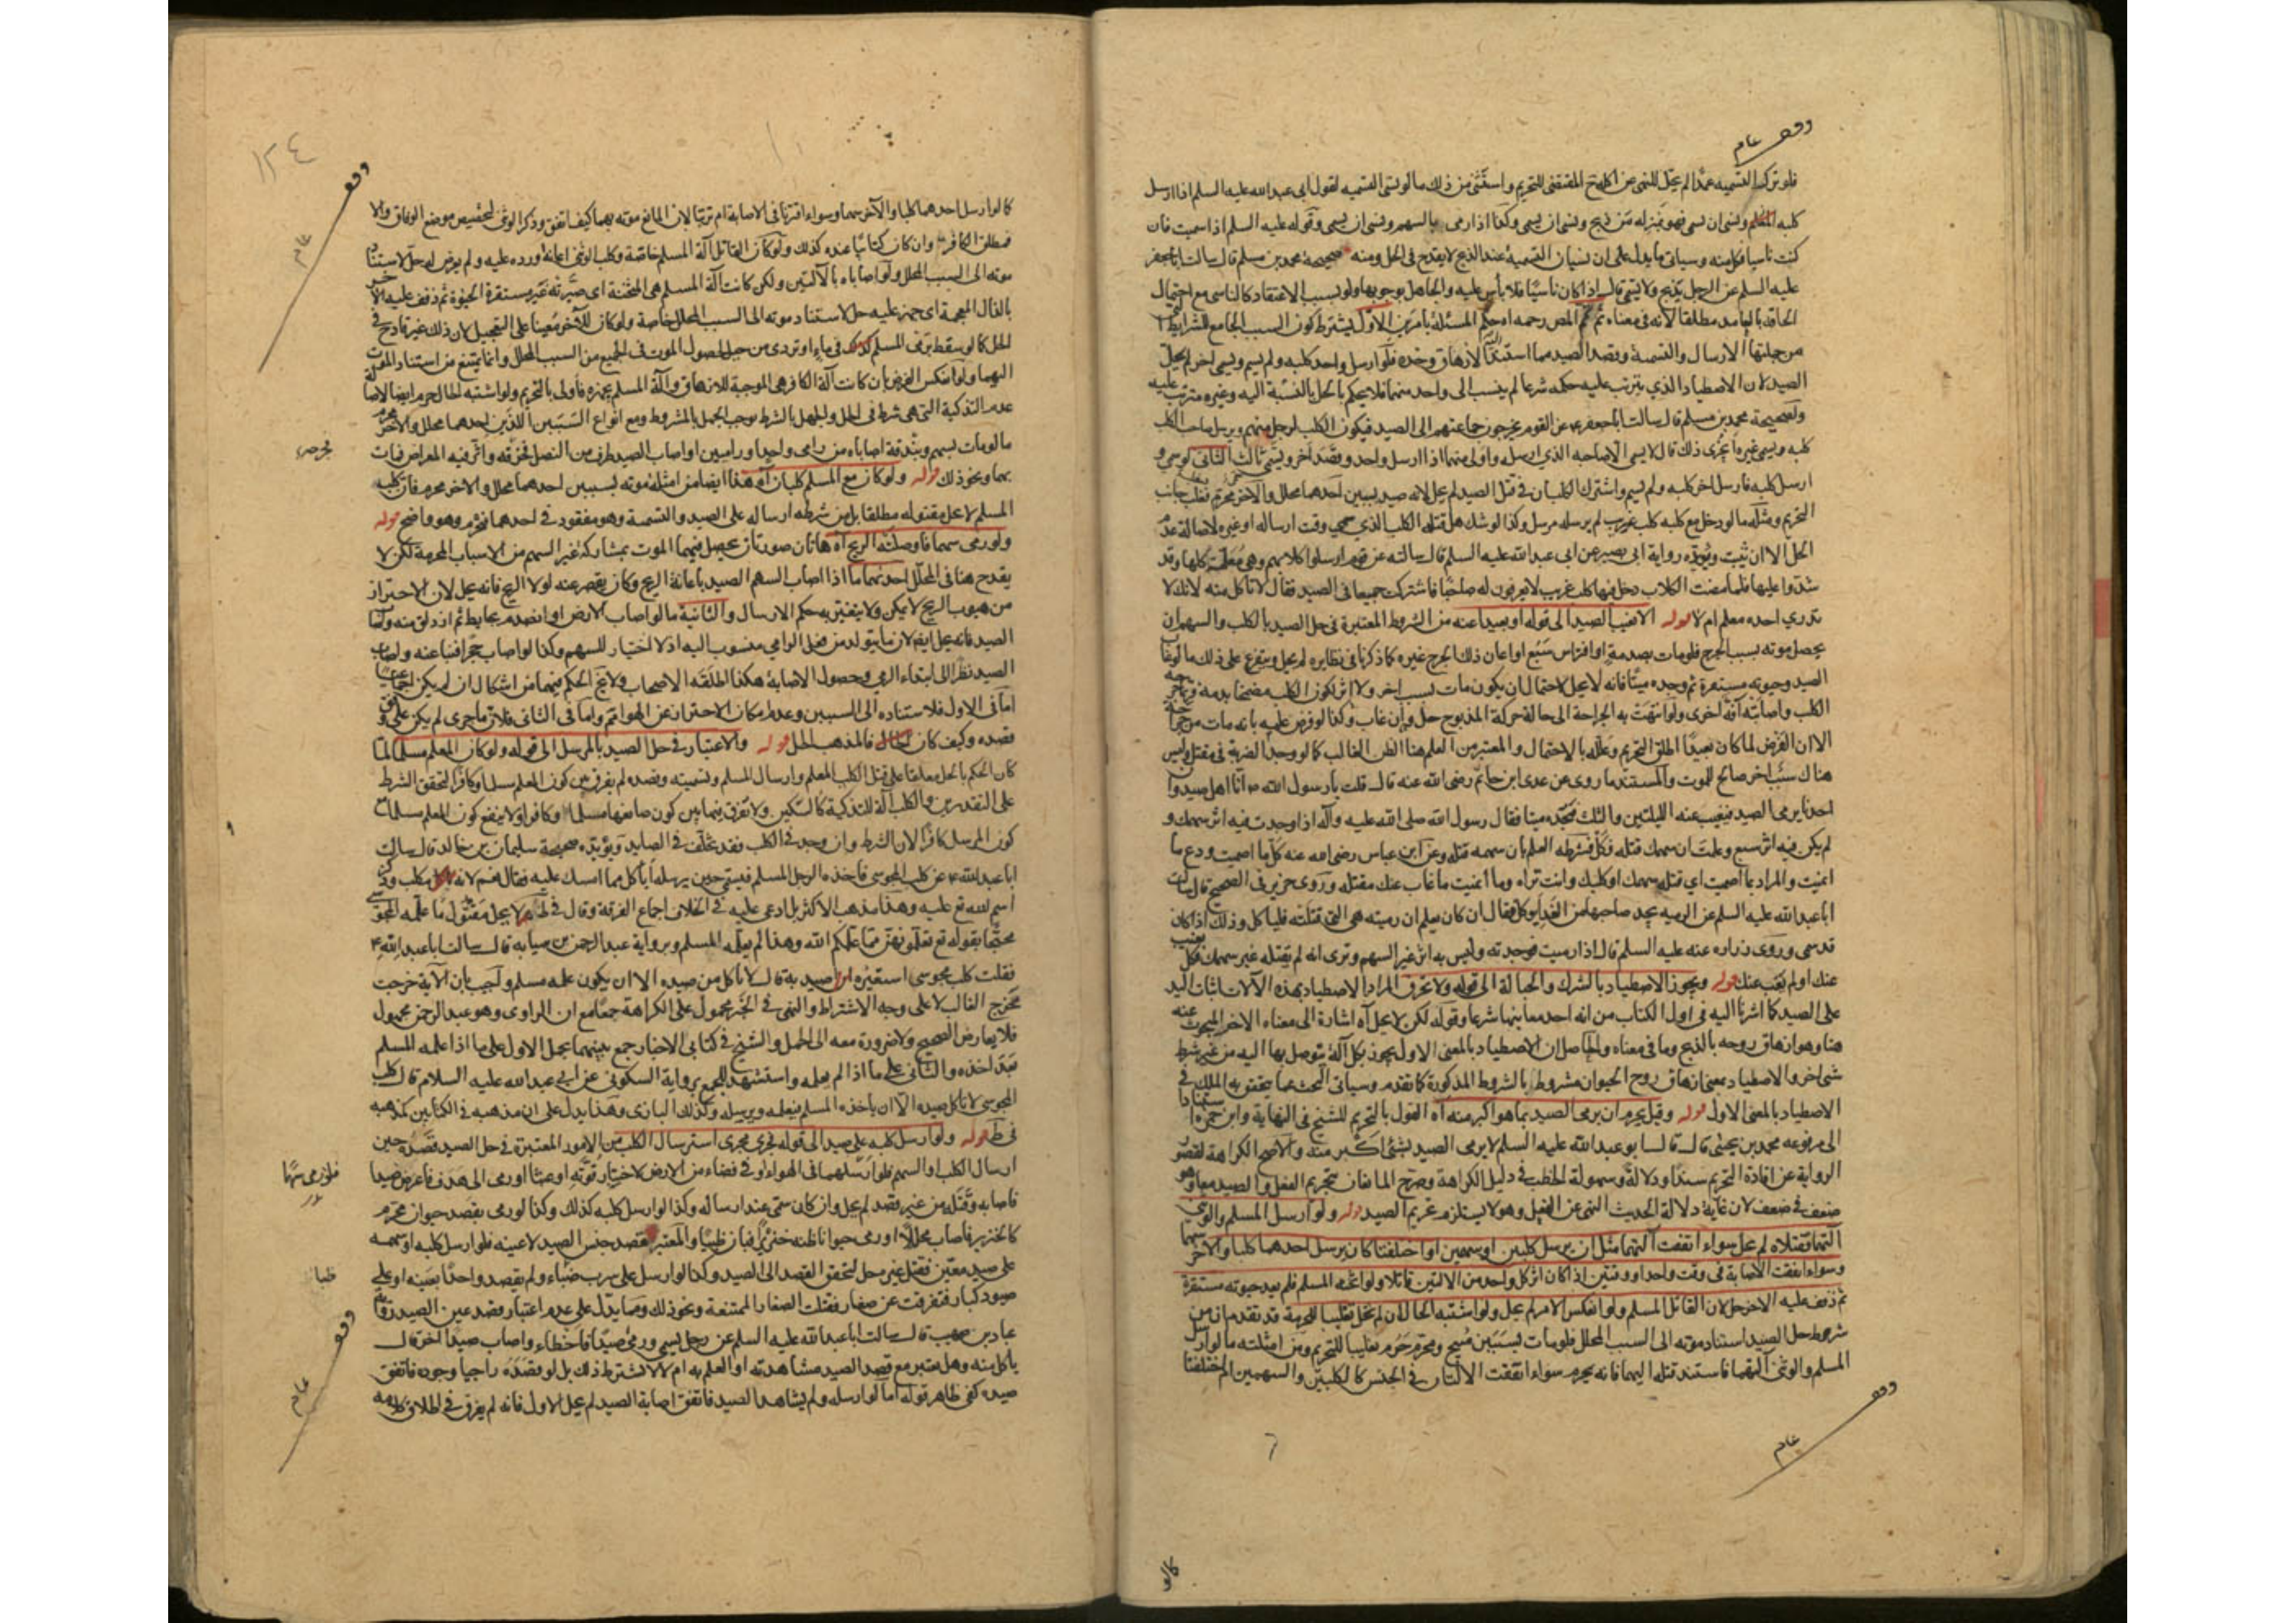 وقف عام
فلو ترك التسميه عمدا لم يحل للنهى عن اكله المقتضى للتحريم واستثنى من ذلك ما لو نسى التسميه لقول ابى عبد الله عليه السلم اذا ارسل
كلبه المعلم ونسى ان يسمى فهو بمنزله من ذبح ونسى ان يسمى وكذا اذا رمى بالسهم ونسى ان يسمى وقوله عليه السلم اذا سميت فان
كنت ناسيا فكل منه وسياتى ما يدل على ان نسيان التسمية عند الذبح لا يقدح فى الحل ومنه صحيحة محمد بن مسلم قال سالت ابا جعفر
عليه السلم عن الرجل يذبح ولا يسمى قال اذا كان ناسيا فلا باس عليه والجاهل بوجوبها ولو بسبب الاعتقاد كالناسى مع احتمال
الحاقه بالعامد مطلقا لانه فى معناه ثم تمم المص رحمه اه حكم المسئلة بامرين الاول يشترط كون السبب الجامع للشرايط
من جملتها الارسال والتسمية وقصد الصيد مما استند الازهاق وحده فلو ارسل واحد كلبه ولم يسم ويسمى اخر لم يحل
الصيد لان الاصطياد الذي يترتب عليه حكمه شرعا لم ينسب الى واحد منهما فلا يحكم بالحل بالنسبة اليه وغيره مترتب عليه
ولصحيحة محمد بن مسلم قال سالت ابا جعفر ع عن القوم يخرجون جماعتهم الى الصيد فيكون الكلب لرجل منهم ويرسل صاحب الكلب
كلبه ويسمى غيره ايجزى ذلك قال لا يسمى الا صاحبه الذي ارسله واولى منهما اذا ارسل واحد وقصد اخر ويسمى ثالث الثانى لو سمى و
ارسل كلبه فارسل اخر كلبه ولم يسم واشترك الكلبان فى قتل الصيد لم يحل لانه صيد بسببين احدهما محلل والاخر محرم فغلب جانب
التحريم ومثله ما لو دخل مع كلبه كلب غريب لم يرسله مرسل وكذا لو شك هل قتله الكلب الذي سمى وقت ارساله او غيره لاصالة عدم
الحل الا ان يثبت ويؤيده رواية ابى بصير عن ابى عبد الله عليه السلم قال سالته عن قوم ارسلوا كلابهم وهى معلمة كلها وقد
سموا عليها فلما مضت الكلاب دخل فيها كلب غريب لا يعرفون له صاحبا فاشتركت جميعا فى الصيد فقال لا تاكل منه لانك لا
تدري اخذه معلم ام لا قوله الا يغيب الصيد الى قوله او بعيدا عنه من الشروط المعتبرة فى حل الصيد بالكلب والسهم ان
يحصل موته بسبب الجرح فلو مات بصدمة او افتراس سبع او اعان ذلك الجرح غيره كما ذكرنا فى نظايره لم يحل ويتفرع على ذلك ما لو غاب
الصيد وحيوته مستقرة ثم وجده ميتا فانه لا يحل لاحتمال ان يكون مات بسبب اخر ولا اثر لكون الكلب مضمخا بدمه
الكلب واصابته آفة اخرى ولو انتهت به الجراحة الى حالة حركة المذبوح حل وان غاب وكذا لو فرض علمه بانه مات من جراحته
الا ان الفرض لما كان بعيدا اطلق التحريم وعلله بالاحتمال والمعتبر من العلم هنا الظن الغالب كما لو وجد الضربة فى مقتل وليس
هناك سبب اخر صالح للموت والمستند ما روى عن عدى ابن حاتم رضى الله عنه قال قلت يا رسول الله ص انا اهل صيد وا
احدنا يرمى الصيد فيغيب عنه الليلتين والثلث فيجده ميتا فقال رسول الله صلى الله عليه وآله اذا وجدت فيه اثر سهمك و
لم يكن فيه اثر سبع وعلمت ان سهمك قتله فكل فشرطه العلم بان سهمه قتله وعن ابن عباس رضى الله عنه كل ما اصميت ودع ما
انميت والمراد بما اصميت اي قتله سهمك او كلبك وانت تراه وما انميت ما غاب عنك مقتله وروى حريز فى الصحيح قال سالت
ابا عبد الله عليه السلم عن الرميه يجد صاحبها من الغد ايوكل فقال ان كان يعلم ان رميته هى التى قتلته فلياكل وذلك اذا كان
قد سمى وروى زراره عنه عليه السلم قال اذا رميت فوجدته وليس به اثر غير السهم وترى انه لم يقتله غير سهمك فكل يغيب
عنك او لم يغب عنك قوله ويجوز الاصطياد بالشرك والحبالة الى قوله ولا تحرق المراد بالاصطياد بهذه الآلات اثبات اليد
على الصيد كما اشرنا اليه فى اول الكتاب من انه احد معانيها شرعا وقوله لكن لا يحل آه اشارة الى معناه الاخر المبحوث عنه
هنا وهو ازهاق روحه بالذبح وما فى معناه والحاصل ان الاصطياد بالمعنى الاول يجوز بكل آلة يتوصل بها اليه من غير شرط
شى اخر والاصطياد بمعنى ازهاق روح الحيوان مشروط بالشروط المذكورة كما تقدم وسياتى البحث عما يتحقق به الملك فى
الاصطياد بالمعنى الاول قوله وقيل يحرم ان يرمى الصيد بما هو اكبر منه آه القول بالتحريم للشيخ فى النهاية وابن حمزه استنادا
الى مرفوعه محمد بن يحيى قال قال ابو عبد الله عليه السلم لا يرمى الصيد بشئ اكبر منه والاصح الكراهة لقصور
الرواية عن افادة التحريم سندا ودلالة وسهولة الخطب فى دليل الكراهة وصرح المانعان بتحريم الفعل والصيد معا وهو
ضعف فى ضعف لان غاية دلالة الحديث النهى عن الفعل وهو لا يستلزم تحريم الصيد قوله ولو ارسل المسلم والوثنى
آلتهما فقتلاه لم يحل سواء اتفقت آلتهما مثل ان يرسل كلبين او سهمين او اختلفتا كان يرسل احدهما كلبا والاخر سهما
وسواء اتفقت الاصابة فى وقت واحد او وقتين اذا كان اثر كل واحد من الالتين قاتلا ولو اثخنه المسلم فلم يعد حيوته مستقرة
ثم ذفف عليه الاخر حل لان القاتل المسلم ولو انعكس الامر لم يحل ولو اشتبه الحالان لم يحل تغليبا للحرمة قد تقدم ان من
شروط حل الصيد استناد موته الى السبب المحلل فلو مات بسببين مبيح ومحرم حرم تغليبا للتحريم ومن امثلته ما لو ارسل
المسلم والوثنى آلتهما فاستند قتله اليهما فانه يحرم سواء اتفقت الالتان فى الجنس كالكلبين والسهمين ام اختلفتا
وقف عام
كالو
١٢٤
وقف عام
كما لو ارسل احدهما كلبا والآخر سهما وسواء اقترنا فى الاصابة ام ترتبا لان المانع موته بهما كيف اتفق وذكر الوثنى لتخصيص موضع الوفاق والا
فمطلق الكافر وان كان كتابيا عنده كذلك ولو كان القاتل آلة المسلم خاصة وكلب الوثنى اعانه او رده عليه ولم يعرض له حل لاستناد
موته الى السبب المحلل ولو اصاباه بالآلتين ولكن كانت آلة المسلم هى المثخنة اى صيرته غير مستقرة الحيوة ثم ذفف عليه الاخر
بالذال المعجمة اى جهز عليه حل لاستناد موته الى السبب المحلل خاصة ولو كان للآخر معينا على التعجيل لان ذلك غير قادح فى
الحل كما لو سقط برمى المسلم كذلك فى ماء او تردى من جبل لحصول الموت فى الجميع من السبب المحلل وانما يمتنع من استناد الموت
اليهما ولو انعكس الفرض بان كانت آلة الكافر هى الموجبة للازهاق وآلة المسلم مجهزه فاولى بالتحريم ولو اشتبه الحال حرم ايضا لاصالة
عدم التذكية التى هى شرط فى الحل والجهل بالشرط يوجب الجهل بالمشروط ومع انواع السببين اللذين احدهما محلل والآخر محرم
ما لو مات بسهم وبندقة اصاباه من رامى واحد او راميين او اصاب الصيد طرف من النصل فخرقه واثر فيه المعراض فمات
بهما ونحو ذلك قوله ولو كان مع المسلم كلبان آه هذا ايضا من امثلة موته بسببين احدهما محلل والاخر محرم فان كلب
المسلم لا يحل مقتوله مطلقا بل من شرطه ارساله على الصيد والتسمية وهو مفقود فى احدهما فيحرم وهو واضح قوله
ولو رمى سهما فاوصلته الريح آه هاتان صورتان يحصل فيهما الموت بمشاركة غير السهم من الاسباب المحرمة لكن لا
يقدح هنا فى المحلل احدهما ما اذا اصاب السهم الصيد باعانة الريح وكان يقصر عنه لولا الريح فانه يحل لان الاحتراز
من هبوب الريح لا يمكن ولا يتغير به حكم الارسال والثانية ما لو اصاب الارض او انصدم بحايط ثم ازدلق منه واصاب
الصيد فانه يحل ايضا لان ما يتولد من فعل الرامي منسوب اليه اذ لا اختيار للسهم وكذا لو اصاب حجرا فنبا عنه واصاب
الصيد نظرا الى ابتداء الرمي وحصول الاصابة هكذا اطلقه الاصحاب ولا يخ الحكم فيهما من اشكال ان لم يكن اجماعيا
اما فى الاول فلاستناده الى السببين وعدم امكان الاحتراز عن الهوا تم واما فى الثانى فلان ما جرى لم يكن على وفق
قصده وكيف كان فالمذهب الحل قوله والاعتبار فى حل الصيد بالمرسل الى قوله ولو كان المعلم مسلما لما
كان الحكم بالحل معلقا على قتل الكلب المعلم وارسال المسلم وتسميته وقصده لم يفرق بين كون المعلم مسلما او كافرا لتحقق الشرط
على التقديرين والكلب آلة للتذكية كالسكين ولا تفرق فيها بين كون صانعها مسلما وكافرا ولا ينفع كون المعلم مسلما مع
كون المرسل كافرا لان الشرط وان وجد فى الكلب فقد تخلف فى الصايد ويؤيده صحيحة سليمان بن خالد قال سالت
ابا عبد الله ع عن كلب المجوسى فاخذه الرجل المسلم فيسمى حين يرسله أياكل مما امسك عليه فقال نعم لانه مكلب وذكر
اسم الله تع عليه وهذا مذهب الاكثر بل ادعى عليه فى الخلاف اجماع الفرقة وقال فى ط لا يحل مقتول ما علمه المجوسى
محتجا بقوله تع تعلمونهن مما علمكم الله وهذا لم يعلمه المسلم وبرواية عبد الرحمن بن سيابه قال سالت ابا عبد الله ع
فقلت كلب مجوسى استعيره اصيد به قال لا تاكل من صيده الا ان يكون علمه مسلم واجيب بان الآية خرجت
مخرج الغالب لا على وجه الاشتراط والنهى فى الخبر محمول على الكراهة جمعا مع ان الراوى وهو عبد الرحمن مجهول
فلا يعارض الصحيح ولا ضرورة معه الى الحمل والشيخ فى كتابى الاخبار جمع بينهما بحمل الاول على ما اذا علمه المسلم
بعد اخذه والثانى على ما اذا لم يعلمه واستشهد للجمع برواية السكونى عن ابى عبد الله عليه السلام قال كلب
المجوسى لا تاكل صيده الا ان ياخذه المسلم فيعلمه ويرسله وكذلك البازى وهذا يدل على ان مذهبه فى الكتابين كمذهبه
فى ط قوله ولو ارسل كلبه على صيد الى قوله فجرى مجرى استرسال الكلب من الامور المعتبرة فى حل الصيد قصده حين
ارسال الكلب او السهم فلو ارسلهما فى الهواء او فى فضاء من الارض لاختبار قوته او عبثا او رمى الى هدف فاعترض صيدا
فاصابه وقتله من غير قصد لم يحل وان كان سمى عند ارساله وكذا لو ارسل كلبه كذلك وكذا لو رمى بقصد حيوان محرم
كالخنزير فاصاب محللا او رمى حيوانا ظنه خنزيرا فبان ظبيا والمعتبر قصد جنس الصيد لا عينه فلو ارسل كلبه او سهمه
على صيد معين فقتل غيره حل لتحقق القصد الى الصيد وكذا لو ارسل على سرب ضباء ولم يقصد واحدا بعينه او على
صيود كبار فتفرقت عن صغار فقتلت الصغار الممتنعة ونحو ذلك ومما يدل على عدم اعتبار قصد عين الصيد رواية
عباد بن صهيب قال سالت ابا عبد الله عليه السلم عن رجل يسمى ورمى صيدا فاخطاء واصاب صيدا اخر قال
ياكل منه وهل معتبر مع قصد الصيد مشاهدته او العلم به ام لا يشترط ذلك بل لو قصده راجيا وجوده فاتفق
صيده كفى ظاهر قوله اما لو ارسله ولم يشاهد الصيد فاتفق اصابة الصيد لم يحل الاول فانه لم يفرق فى اطلاق كلامه
فلو رمى سهما
ظبا
وقف عام